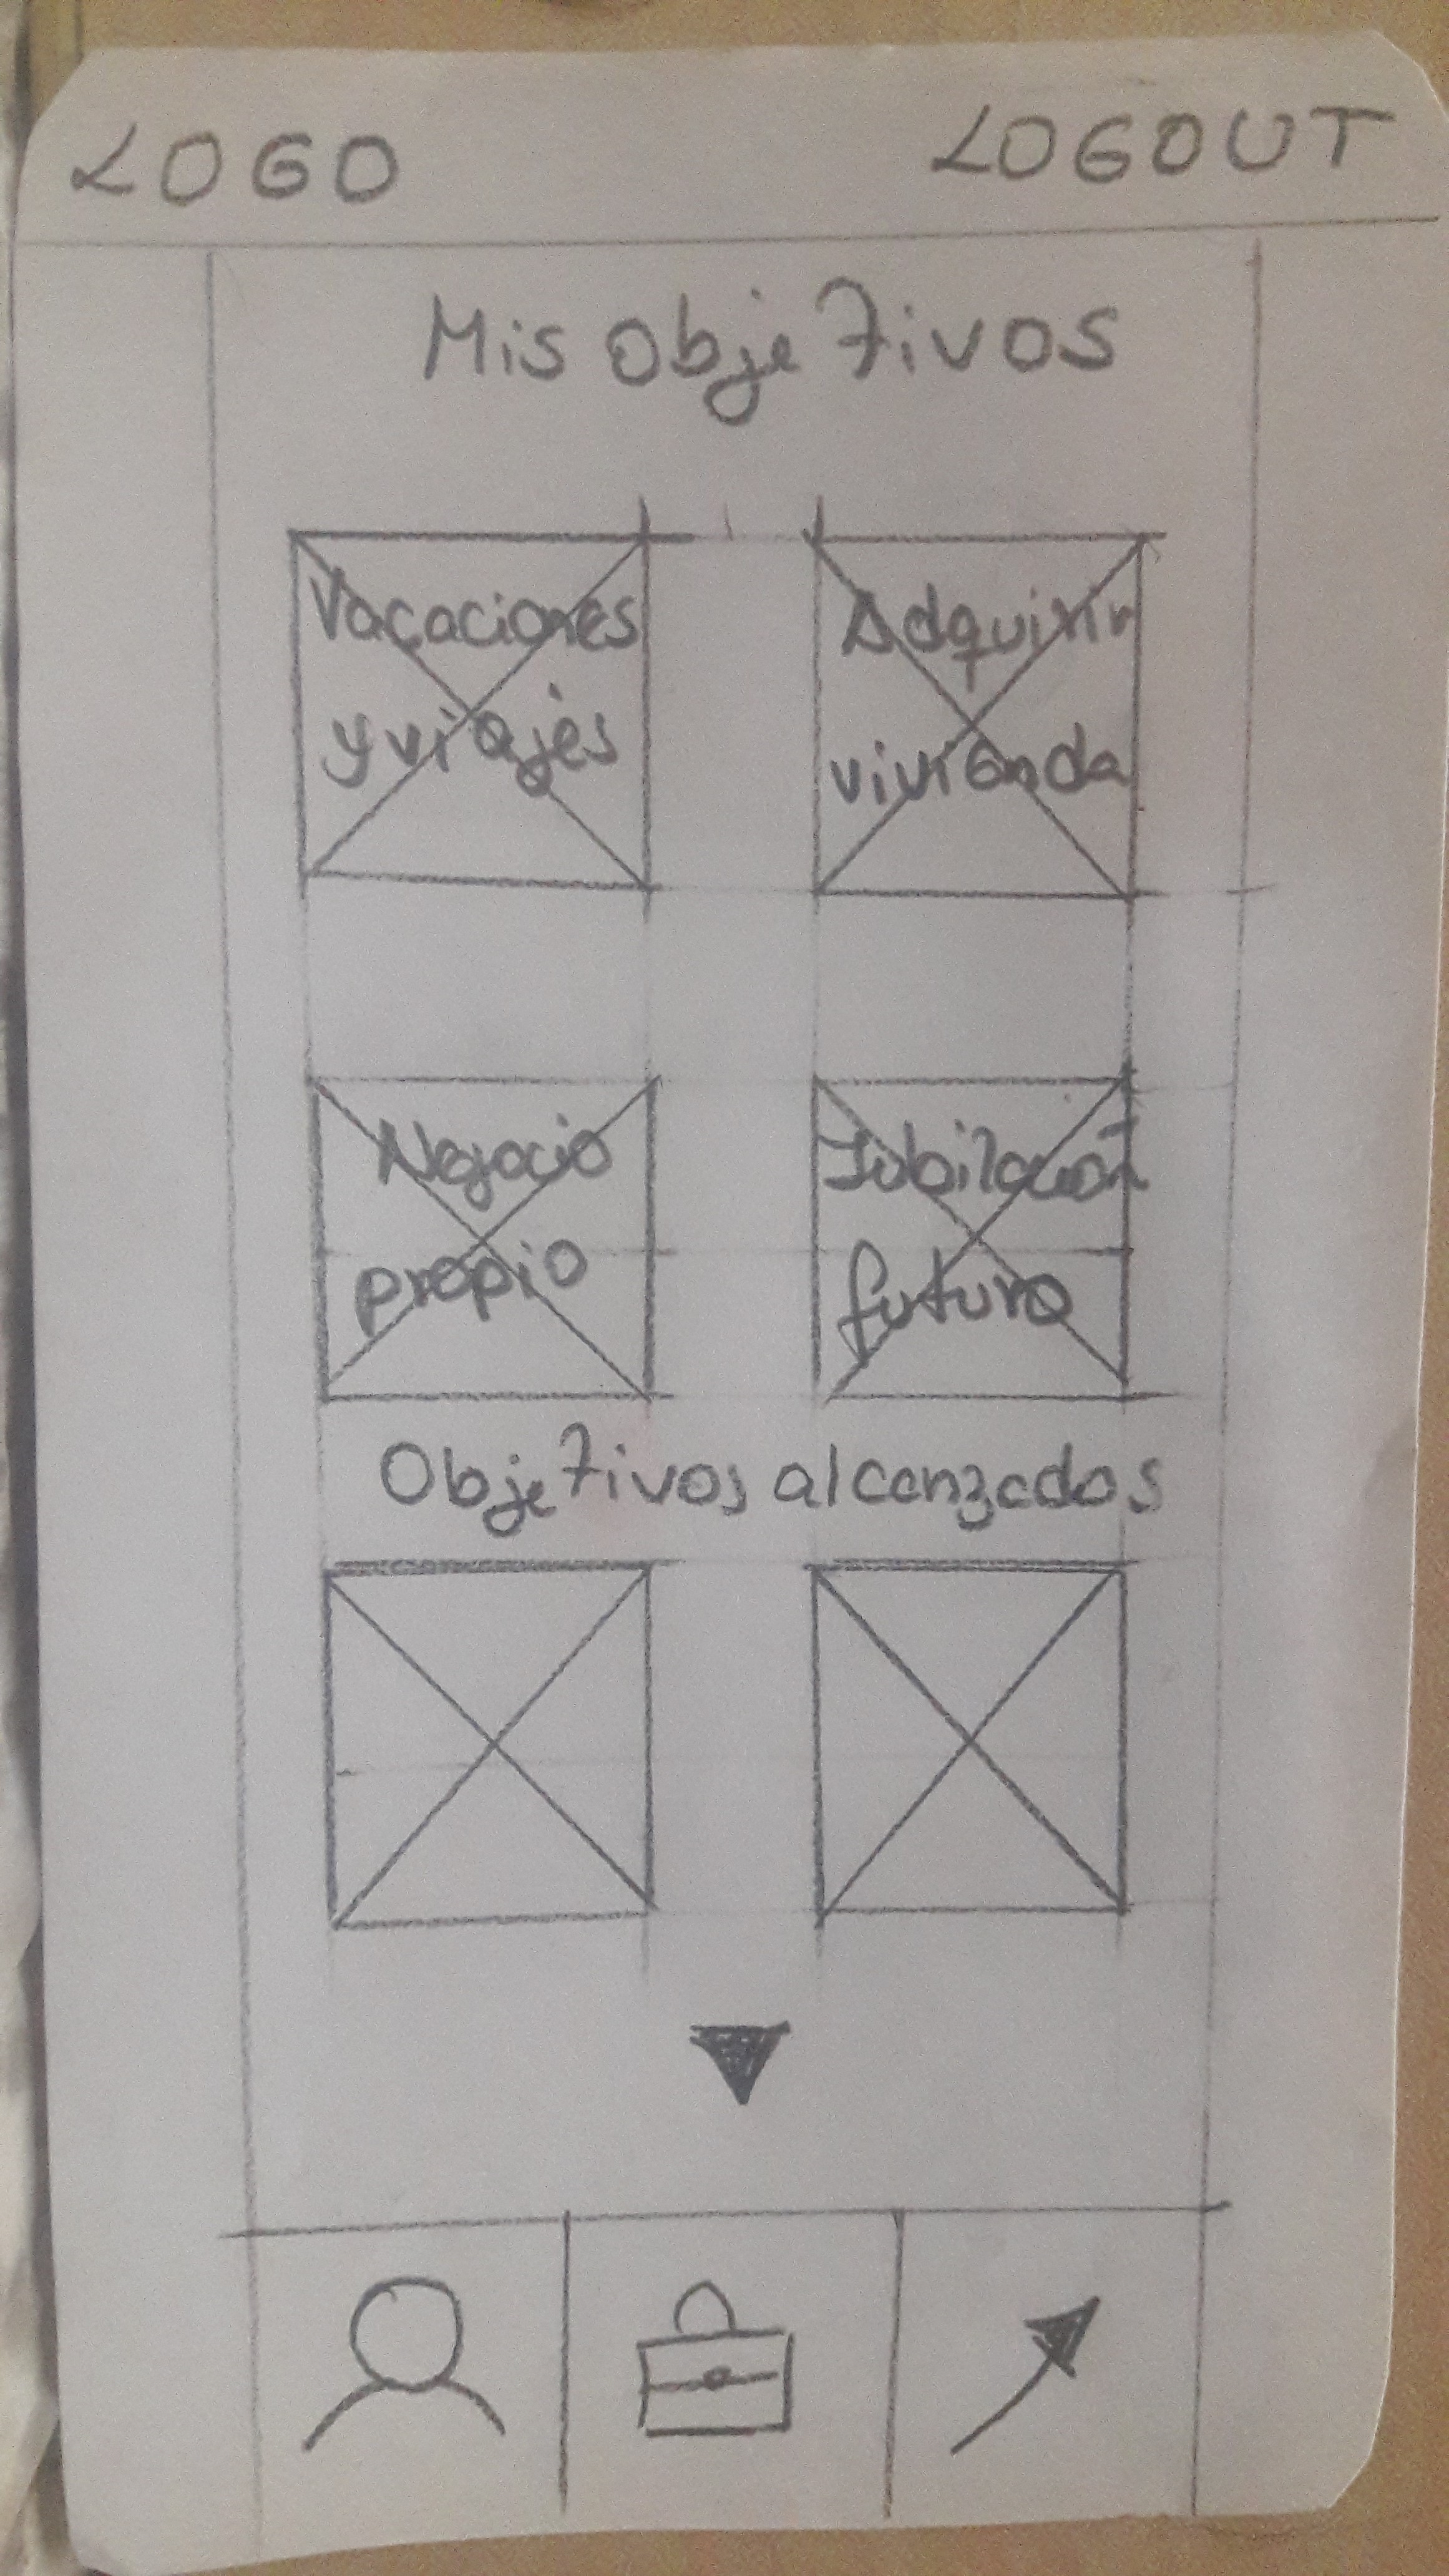 LOGO LOGOUT
Mis Objetivos
Vacaciones
y viajes
Adquirir
vivienda
Negocio
propio
Jubilación
futuro
Objetivos alcanzados